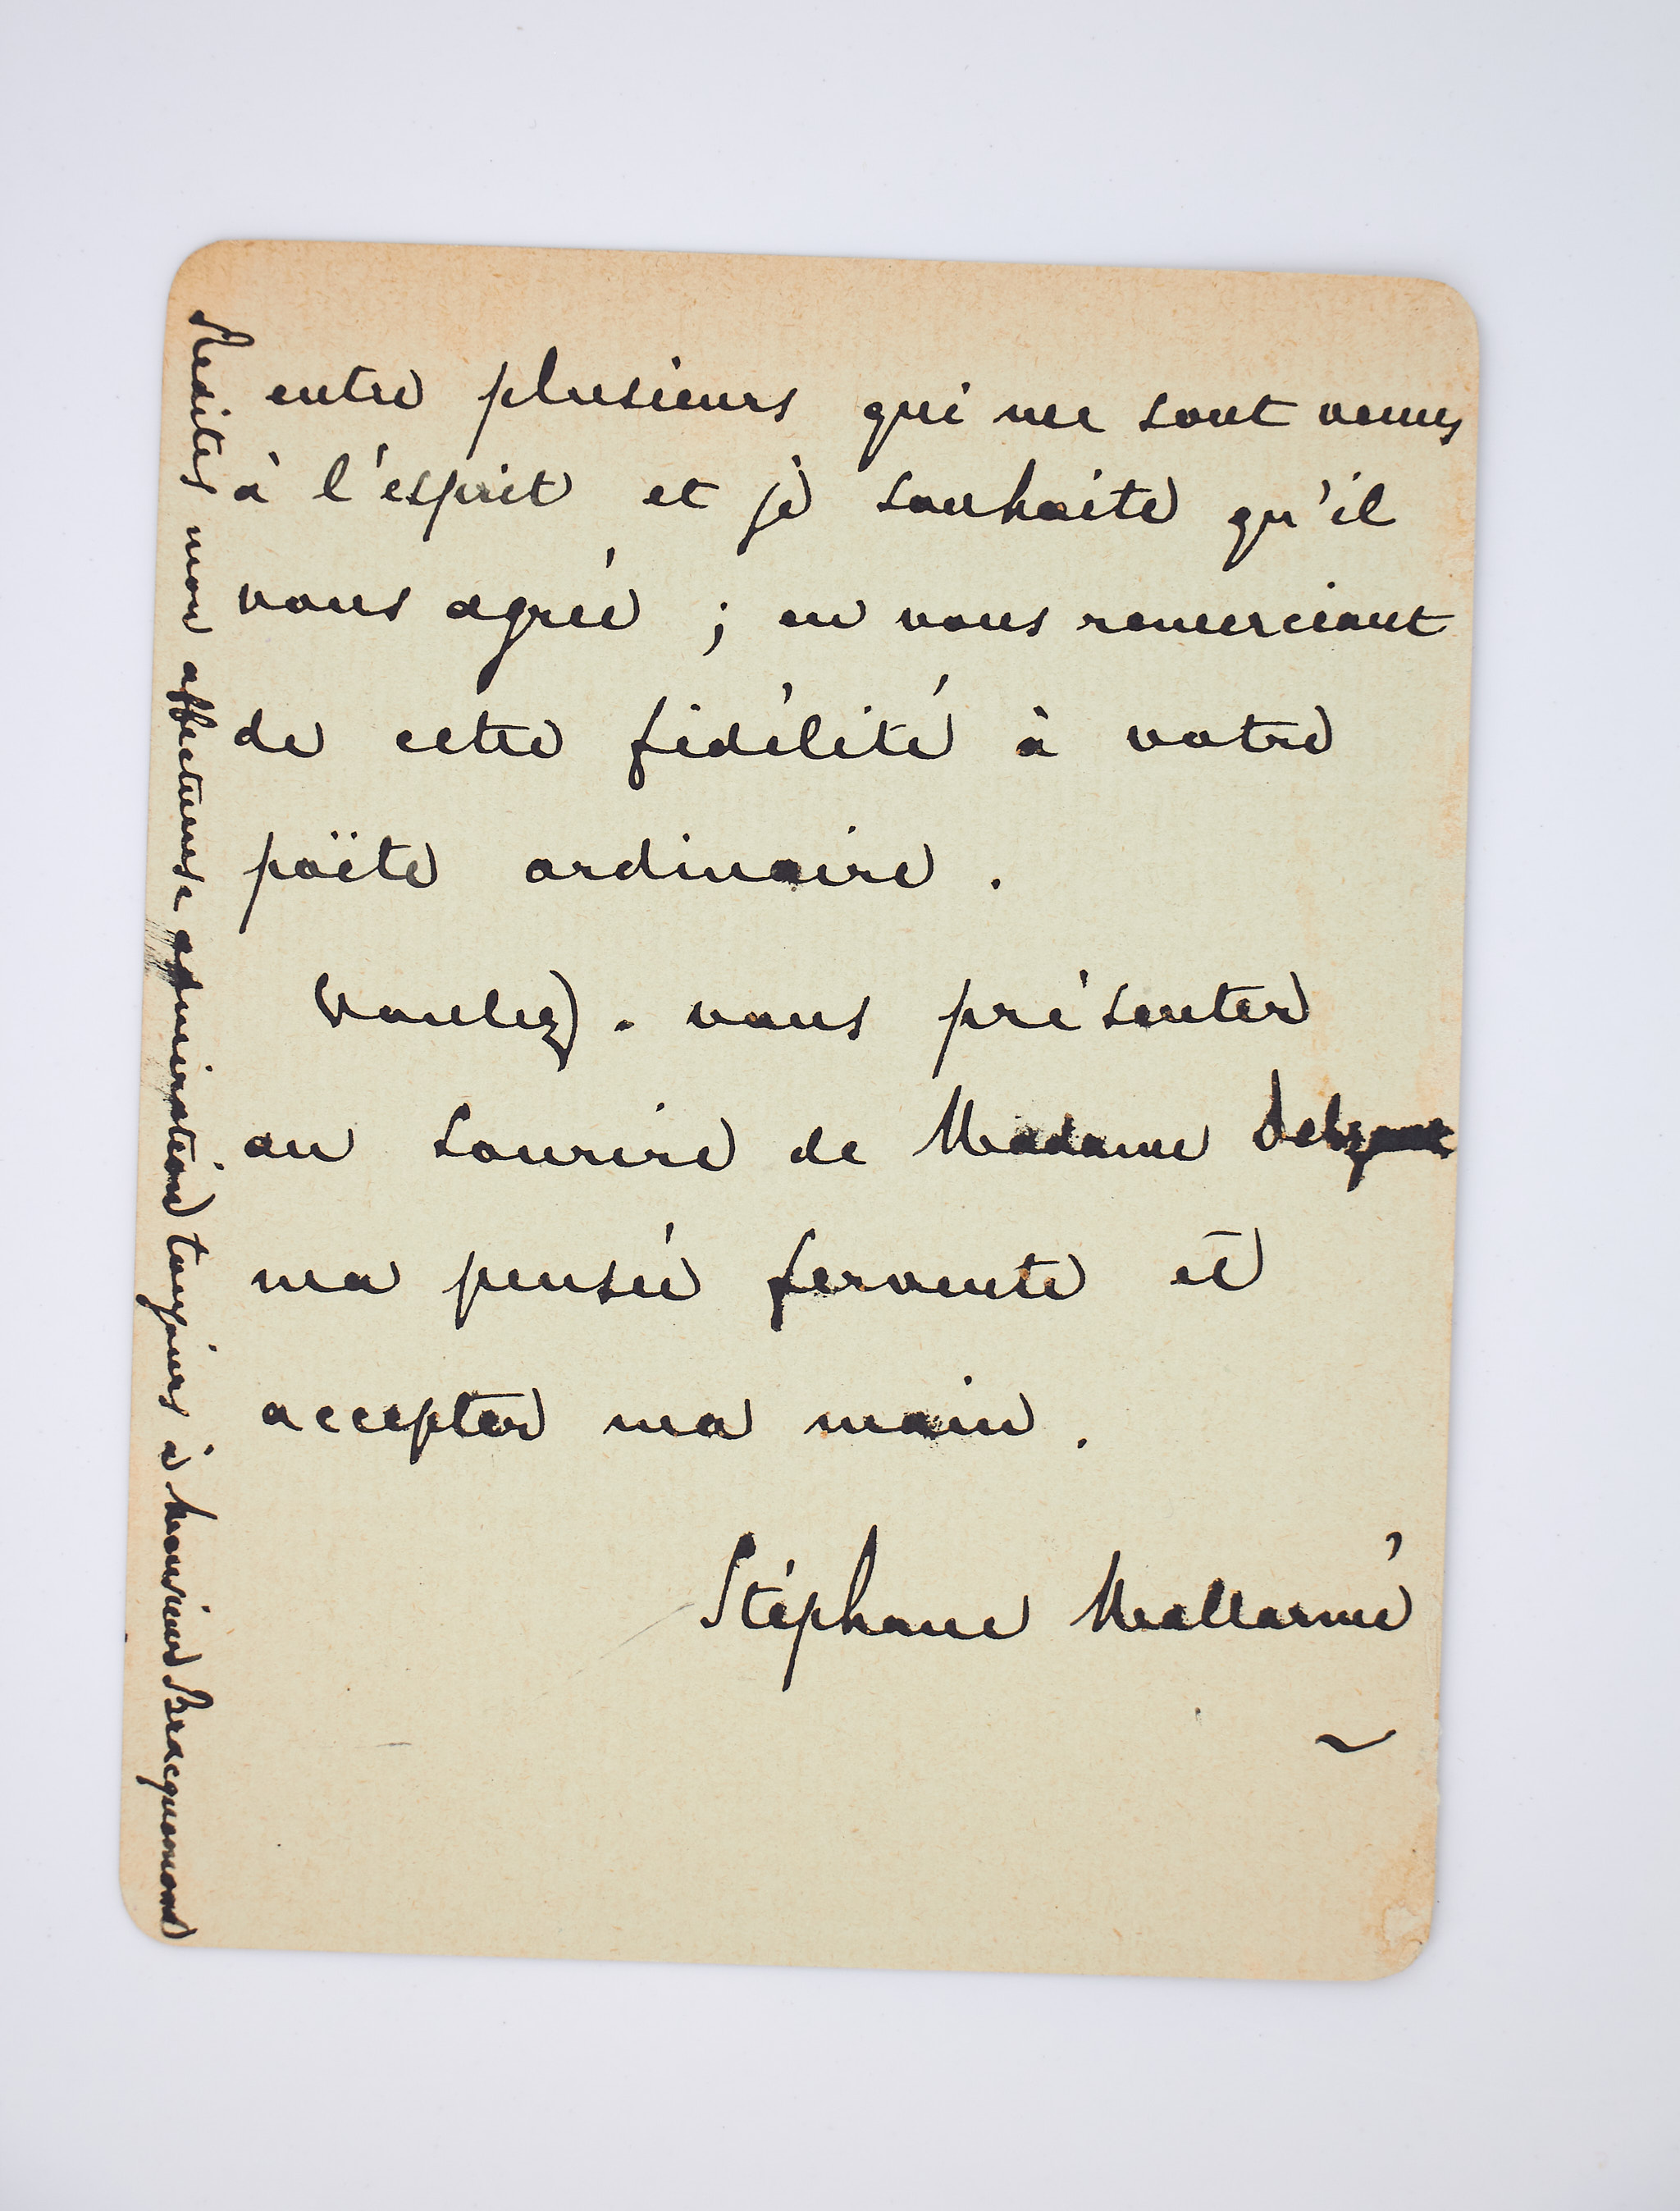 entre plusieurs qui me sont venus
à l'esprit et je souhaite qu'il
vous agrée ; en vous remerciant
de cette fidélité à votre
poëte ordinaire .
Voulez - vous présenter
au sourire de Madame Delzant
ma pensée fervente et
accepter ma main .
Stéphane Mallarmé
Redites mon affectueuse admiration toujours à Monsieur Bracquemond